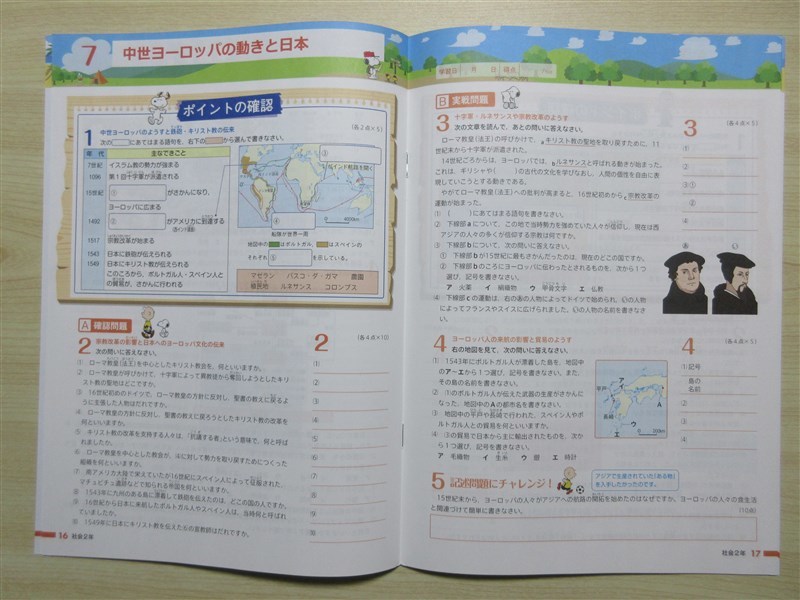 7 中世ヨーロッパの動きと日本
ポイントの確認
1 中世ヨーロッパのようすと鉄砲・キリスト教の伝来
(各2点×5)
次の□にあてはまる語句を、右下の□から選んで書きなさい。
年代 主なできごと
7世紀 イスラム教の勢力が強まる
1096 第1回十字軍が派遣される
15世紀 ① がさかんになり、
ヨーロッパに広まる
1492 ② がアメリカに到達する
1517 宗教改革が始まる
1543 日本に鉄砲が伝えられる
1549 日本にキリスト教が伝えられる
このころから、ポルトガル人・スペイン人と
の貿易が、さかんに行われる
③
インド航路を開く
④
船隊が世界一周
地図中の■はポルトガル、■はスペインの
それぞれ ⑤ を示している。
マゼラン バスコ・ダ・ガマ 農園
植民地 ルネサンス コロンブス
A 確認問題
2 宗教改革の影響と日本へのヨーロッパ文化の伝来
(各4点×10)
次の問いに答えなさい。
① ローマ教皇(法王)を中心としたキリスト教会を、何といいますか。
② ローマ教皇が呼びかけて、十字軍によって異教徒から奪回しようとしたキリ
スト教の聖地はどこですか。
③ 16世紀初めのドイツで、ローマ教皇の方針に反対し、聖書の教えに戻るよ
うに主張した人物はだれですか。
④ ローマ教皇の方針に反対し、聖書の教えに戻ろうとしたキリスト教の改革を
何といいますか。
⑤ キリスト教の改革を支持する人々は、「抗議する者」という意味で、何と呼ば
れましたか。
⑥ ローマ教皇を中心とした教会が、④に対して勢力を取り戻すためにつくった
組織を何といいますか。
⑦ 南アメリカ大陸で栄えていたが16世紀にスペイン人によって征服された、
マチュピチュ遺跡などで知られる帝国を何といいますか。
⑧ 1543年に九州のある島に漂着して鉄砲を伝えたのは、どこの国の人ですか。
⑨ 16世紀から日本に来航したポルトガル人やスペイン人は、当時何と呼ばれ
ていましたか。
⑩ 1549年に日本にキリスト教を伝えた⑥の宣教師はだれですか。
2
①
②
③
④
⑤
⑥
⑦
⑧
⑨
⑩
16 社会2年
学習日 月 日 得点
B 実戦問題
3 十字軍・ルネサンスや宗教改革のようす
(各4点×5)
次の文章を読んで、あとの問いに答えなさい。
ローマ教皇(法王)の呼びかけで、aキリスト教の聖地を取り戻すために、11
世紀末から十字軍が派遣された。
14世紀ころからは、ヨーロッパでは、bルネサンスと呼ばれる動きが始まった。
これは、ギリシャや( )の古代の文化を学びなおし、人間の個性を自由に表
現していこうとする動きである。
やがてローマ教皇(法王)への批判が高まると、16世紀初めからc宗教改革の
運動が始まった。
① ( )にあてはまる語句を書きなさい。
② 下線部aについて、この地で当時勢力を強めていた人々が信仰し、現在は西
アジアの人々の多くが信仰する宗教は何ですか。
③ 下線部bについて、次の問いに答えなさい。
① 下線部bが15世紀に最もさかんだったのは、現在のどこの国ですか。
② 下線部bのころにヨーロッパに伝わったとされるものを、次から1つ
選び、記号を書きなさい。
ア 火薬 イ 綿織物 ウ 甲骨文字 エ 仏教
④ 下線部cの運動は、右のあの人物によってドイツで始められ、いの人物
によってフランスやスイスに広げられました。いの人物の名前を書きな
さい。
あ い
3
①
②
③①
②
④
4 ヨーロッパ人の来航の影響と貿易のようす
(各4点×5)
右の地図を見て、次の問いに答えなさい。
① 1543年にポルトガル人が漂着した島を、地図中
のア～エから1つ選び、記号を書きなさい。また、
その島の名前を書きなさい。
② ①のポルトガル人が伝えた武器の生産がさかんに
なった、地図中のAの都市名を書きなさい。
③ 地図中の平戸や長崎で行われた、スペイン人やポ
ルトガル人との貿易を何といいますか。
④ ③の貿易で日本から主に輸出されたものを、次か
ら1つ選び、記号を書きなさい。
ア 毛織物 イ 生糸 ウ 銀 エ 時計
平戸
長崎
ア
イ
ウ
エ
A
4
①記号
島の
名前
②
③
④
5 記述問題にチャレンジ!
アジアで生産されていた「ある物」
を入手したかったのです。
15世紀末から、ヨーロッパの人々がアジアへの航路の開拓を始めたのはなぜですか。ヨーロッパの人々の食生活
と関連づけて簡単に書きなさい。
(10点)
社会2年 17